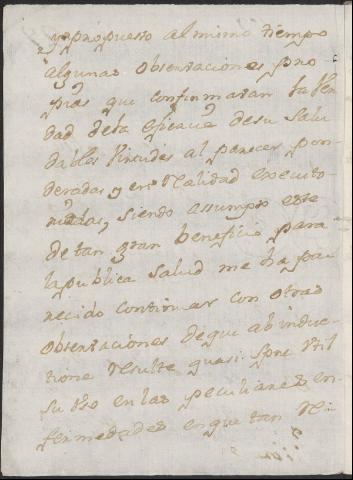 y propuesto al mismo tiempo
algunas obseruaciones pro
pias que confirmaran la Ver
dad dela eficacia de su Salu
dables Virtudes al parecer pon
deradas, y en Realidad executo
riadas, y siendo assumpto este
de tan gran beneficio para
la publica Salud me ha pa
recido continuar con otras
obseruaciones de que ab induc
tione resulte quasi Spre Vtil
su Vso en las peculiares en
fermedades en que tan